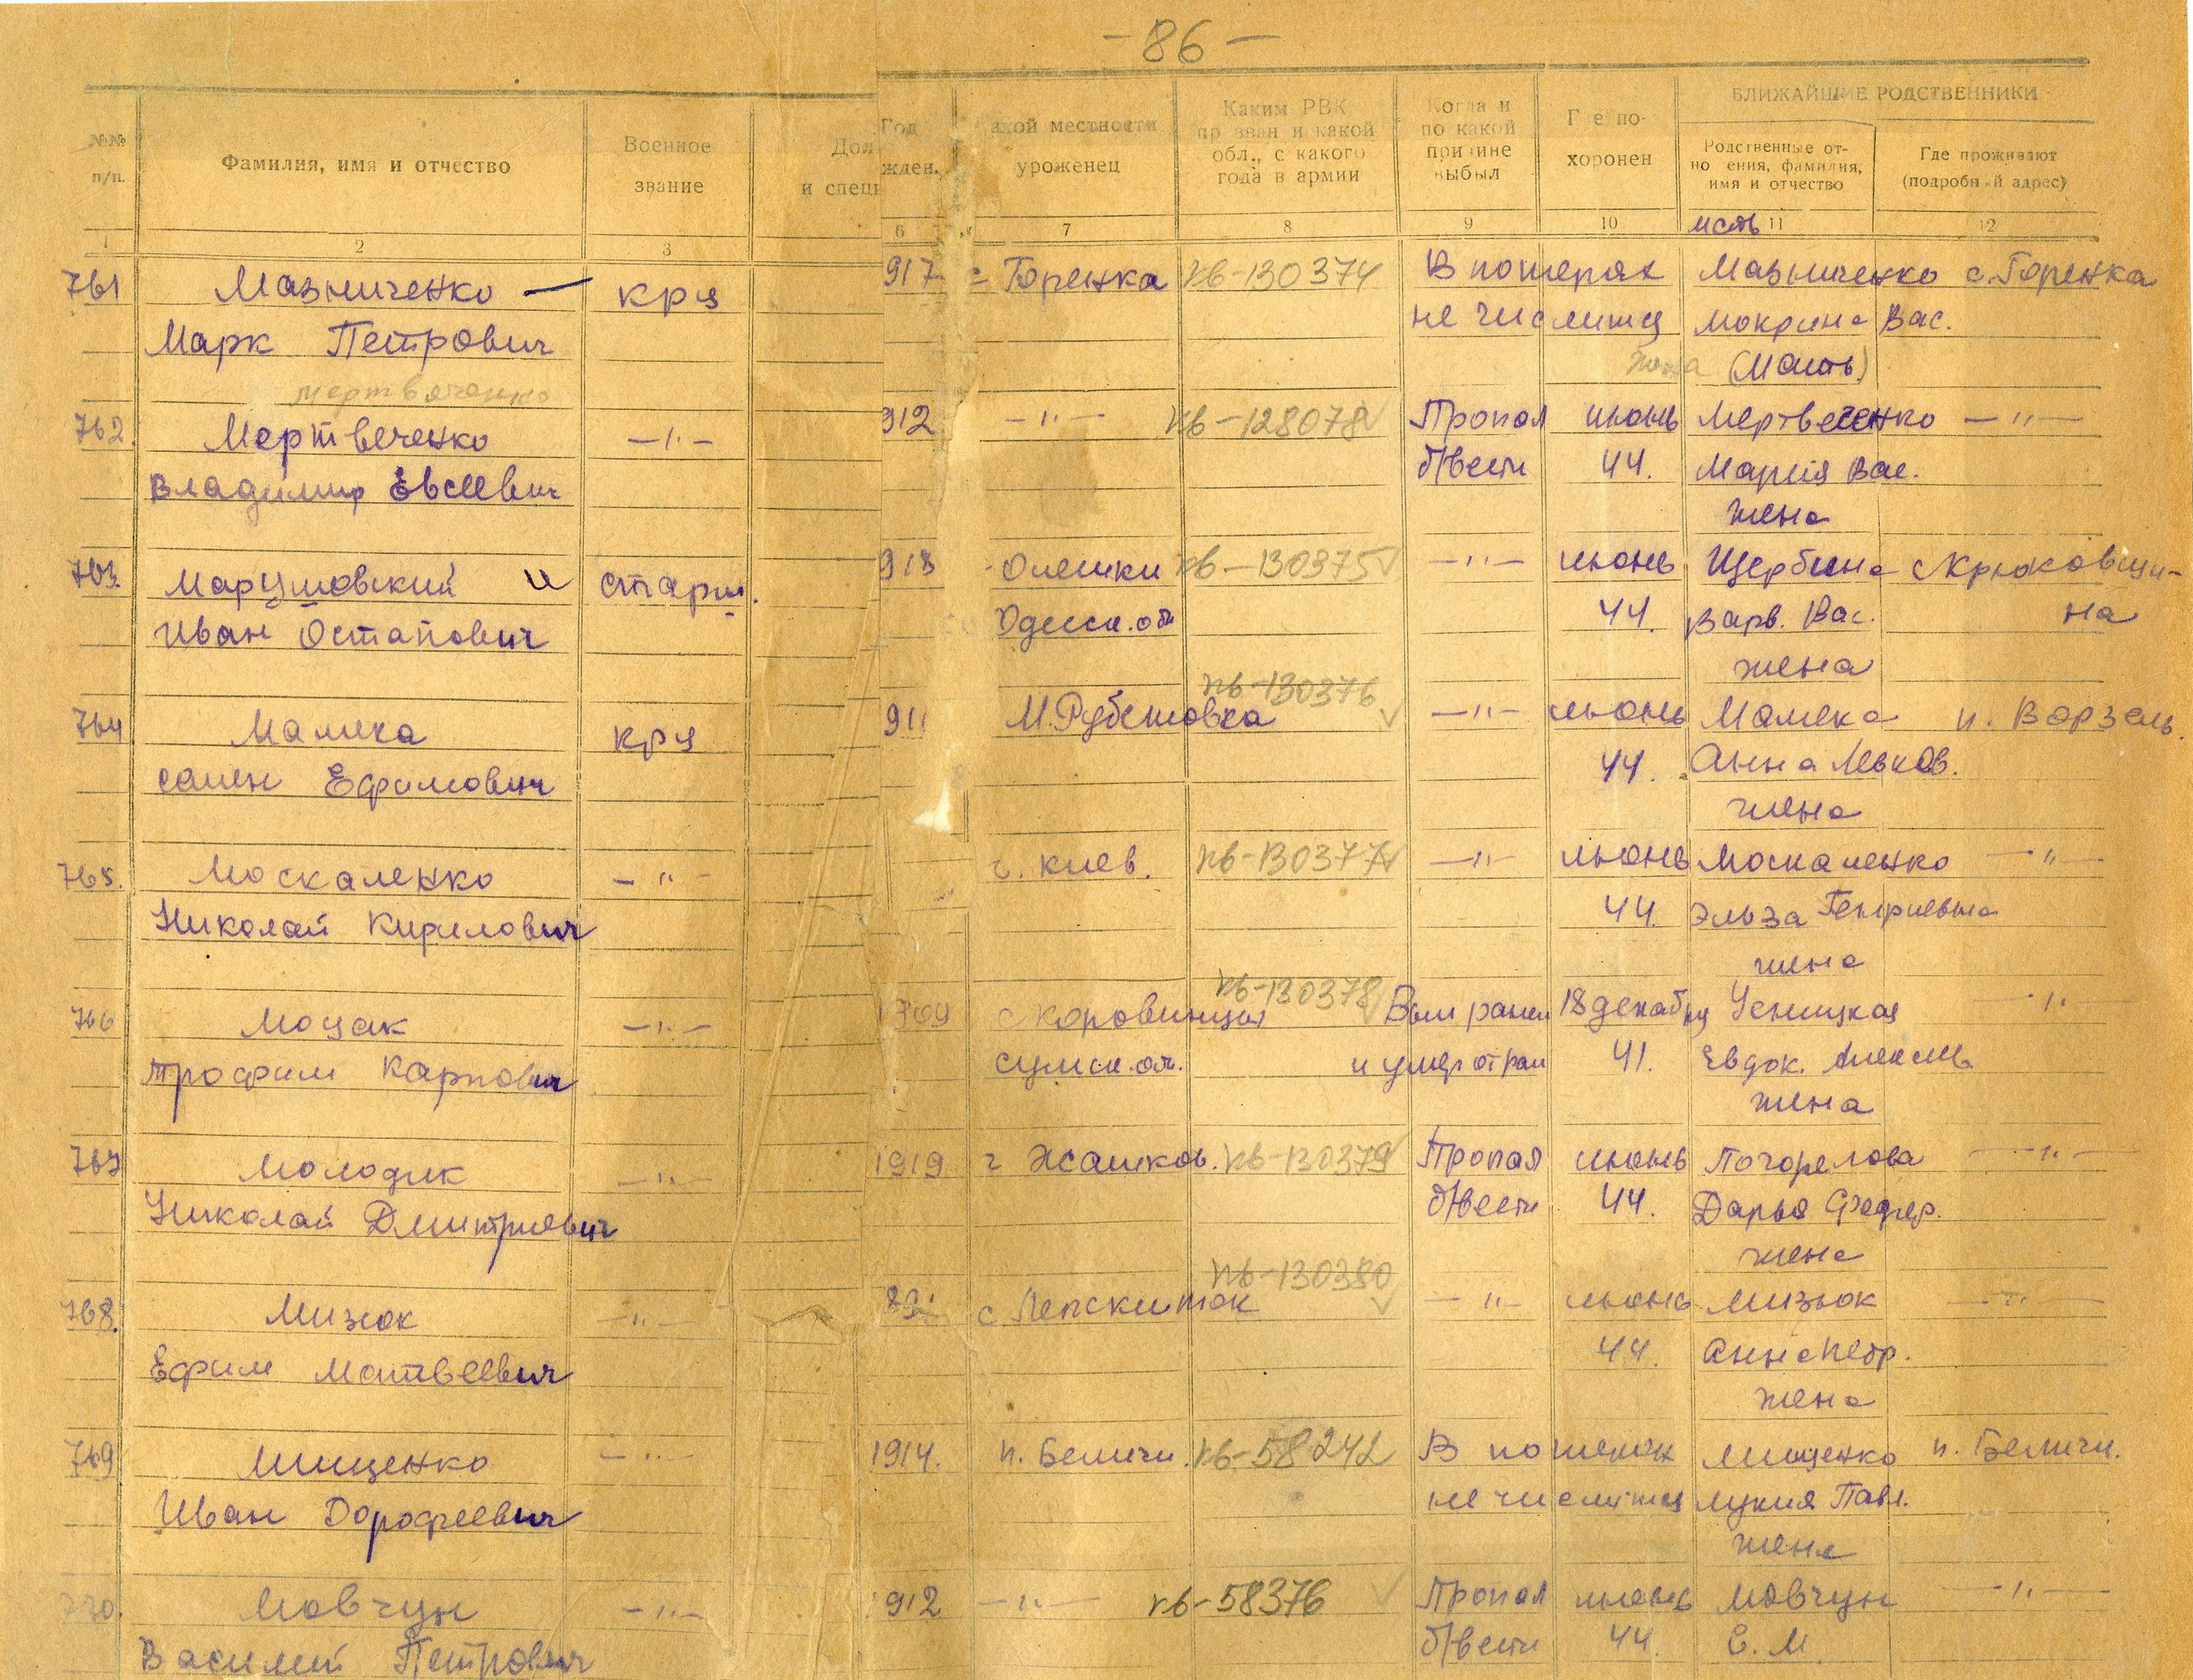 -86-
№№ п/п.
Фамилия, имя и отчество
Военное звание
Дол
и спец
Год
жден.
акой местности уроженец
Каким РВК пр зван и какой обл., с какого года в армии
Когда и по какой причине выбыл
Г е по-хоронен
БЛИЖАЙШИЕ РОДСТВЕННИКИ
Родственные от-но ения, фамилия, имя и отчество
Где проживают (подробн й адрес)
1 2 3 6 7 8 9 10 11 12
мать
761 Мазниченко — кр-ц 917 с Горенка кв-130374 В потерях Мазниченко с. Горенка
Марк Петрович не числится Мокрина Вас.
жена (Мать)
мертвяченко
762. Мертвеченко —"— 912 —"— кв-128078 Пропал июнь Мертвеченко —"—
Владимир Евсеевич б/вести 44. Мария Вас.
жена
763. Марушовский и старш. 913 Олешки кв-130375 —"— июнь Щербина с Крюковщи-
Иван Остапович Одесск. об 44. Варв. Вас. на
жена
кв-130376
764 Мамека кр-ц 911 М. Рубежовка —"— июнь Мамека п. Ворзель.
Семен Ефимович 44. Анна Левков.
жена
765. Москаленко —"— г. Киев. кв-130377 —"— июнь Москаленко —"—
Николай Кирилович 44. Эльза Генриевна
жена
кв-130378
766 Моцак —"— 1909 с Коровинцы Был ранен 18 декабря Усницкая —"—
Трофим Карпович Сумск. ол. и умер от ран 41. Евдок. Алексеев.
жена
767 Молодик —"— 1919 г Жашков. кв-130379 Пропал июнь Погорелова —"—
Николай Дмитриевич б/вести 44. Дарья Федер.
жена
кв-130380
768. Мизюк —"— с —"— июнь Мизюк —"—
Ефим Матвеевич 44. Анна Петр.
жена
769 Мищенко —"— 1914. п. Беличи. кв-58242 В потерях Мищенко п. Беличи.
Иван Дорофеевич не числится Лукия Павл.
жена
770. Мовчун —"— 1912 —"— кв-58376 Пропал июнь Мовчун —"—
Василий Петрович б/вести 44 Е. М.